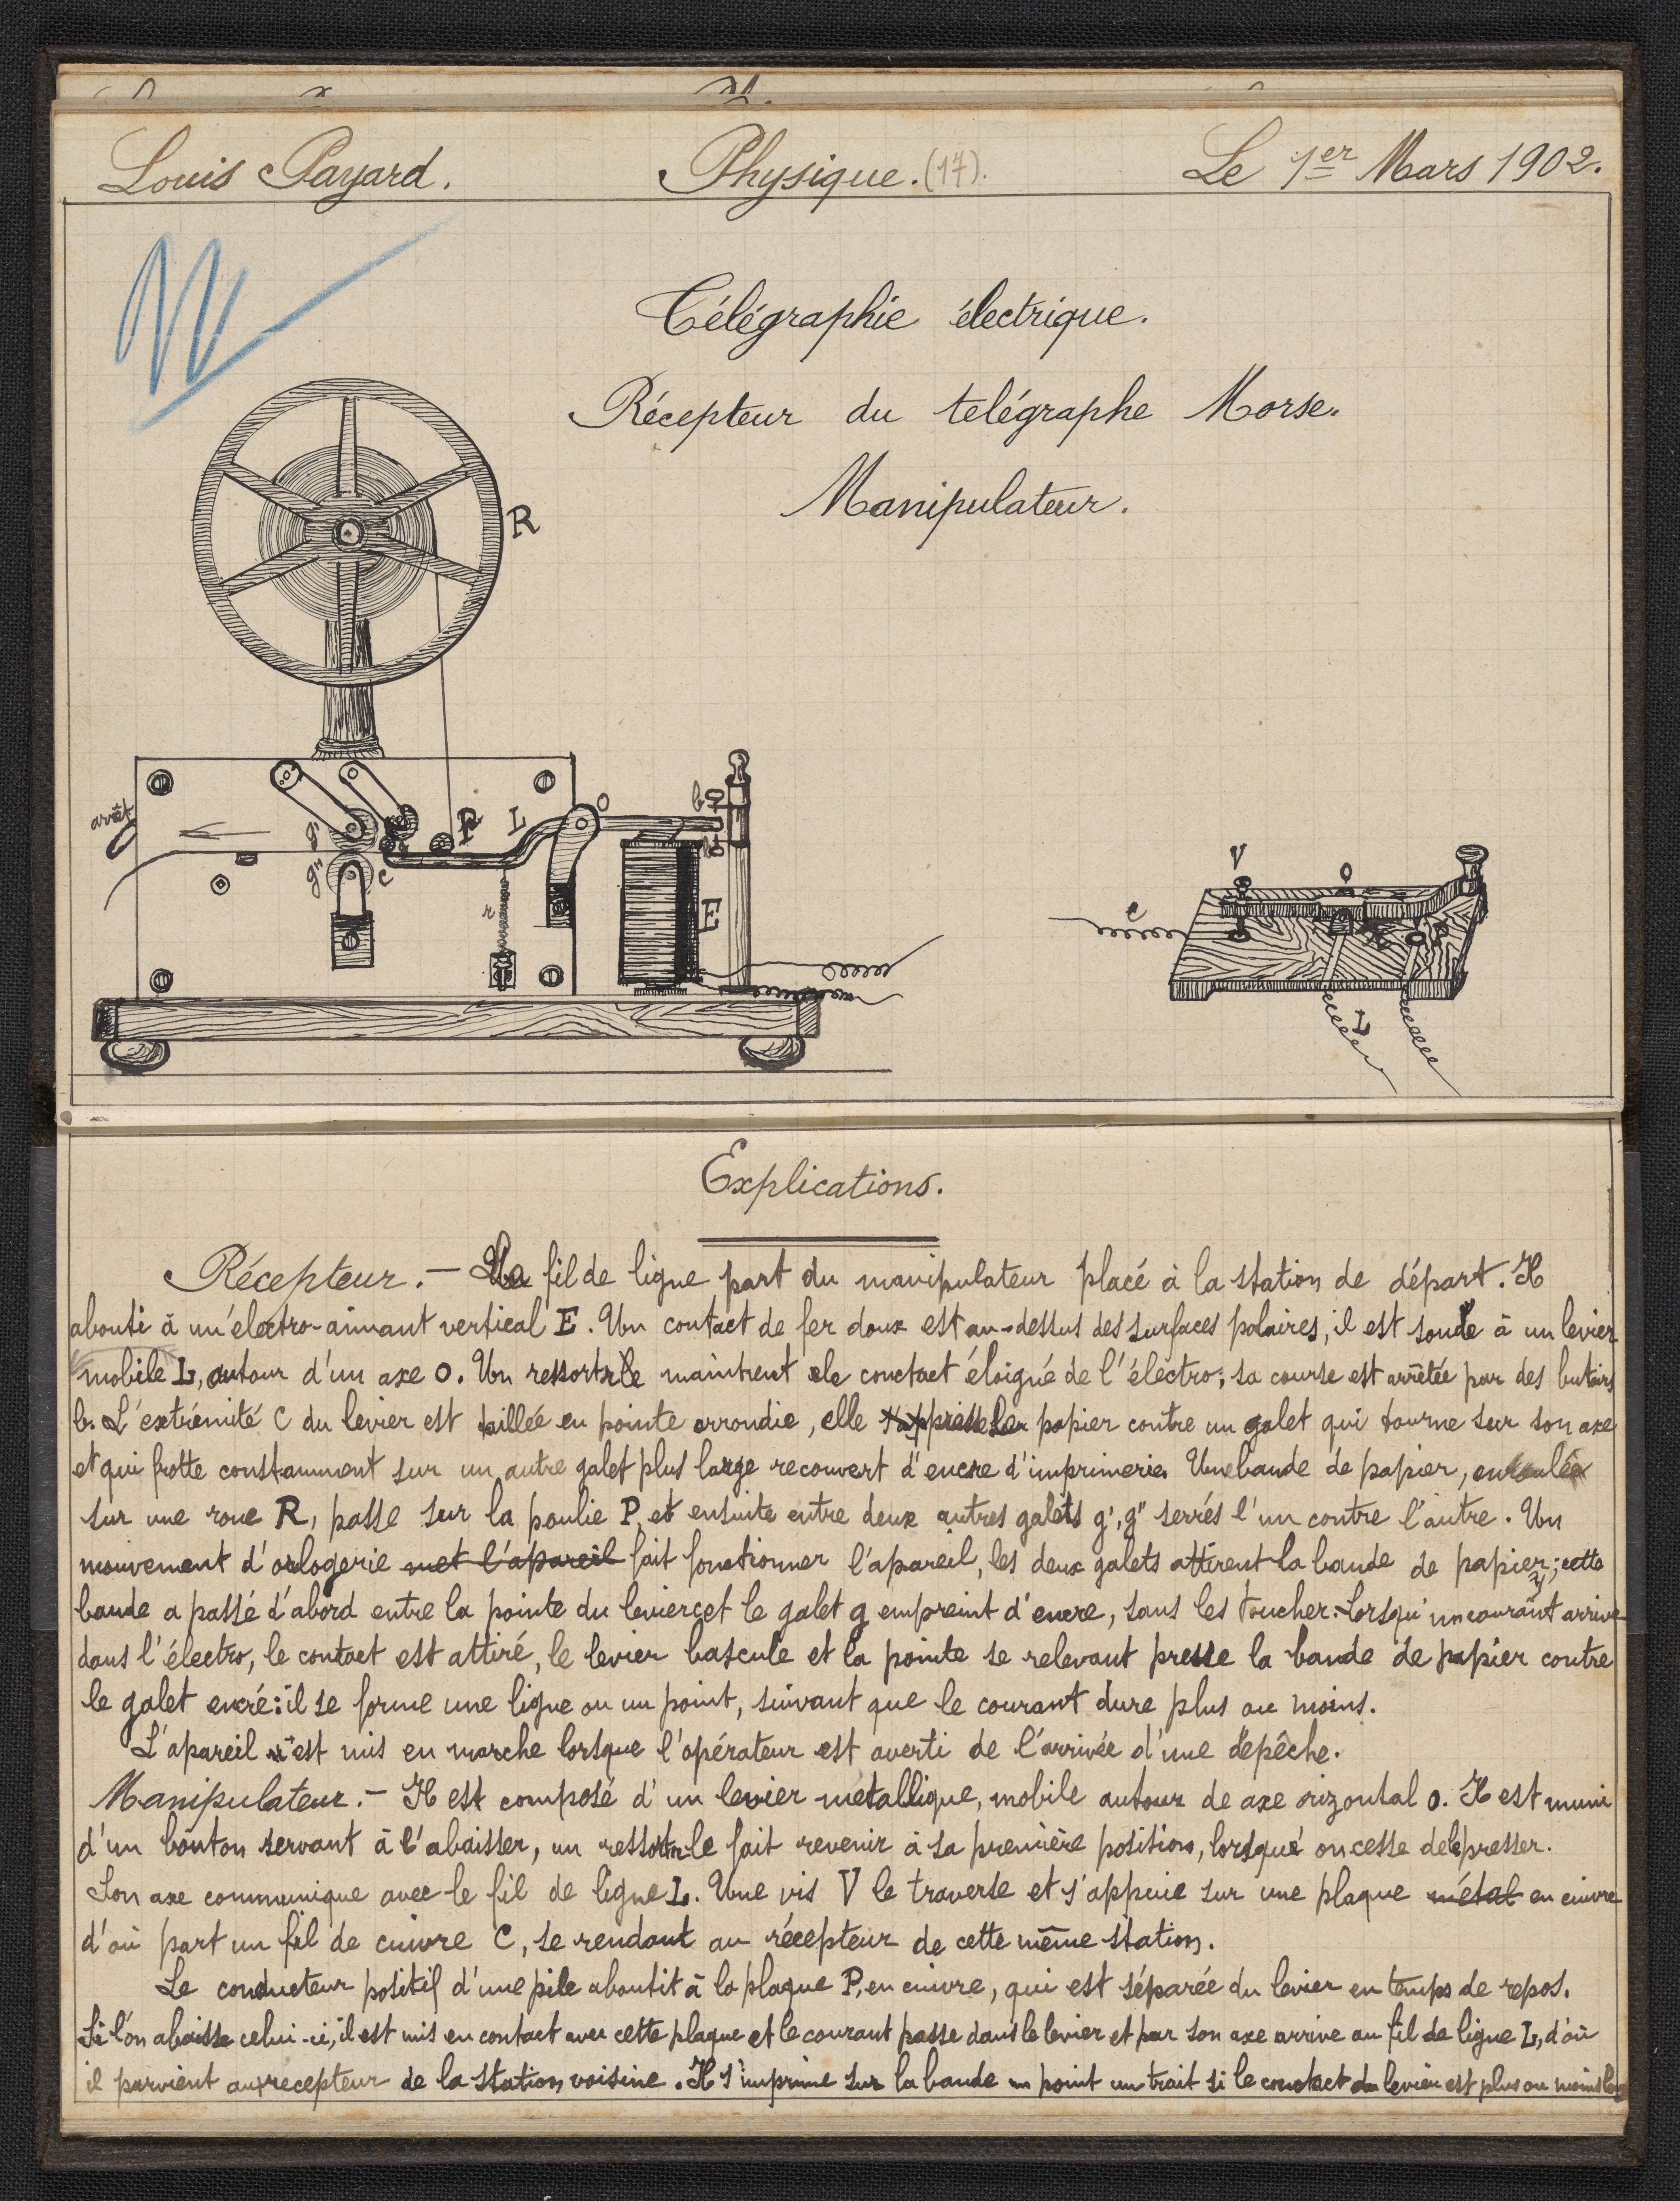 Louis Payard. Physique. (17). Le 1er Mars 1902.
Télégraphie électrique.
Récepteur du telégraphe Morse.
Manipulateur.
R
arrêt
g'
g"
c
P
L
O
b
r
E
V
O
c
L
Explications.
Récepteur. — Un fil de ligne part du manipulateur placé à la station de départ. Il
abouti à un électro-aimant vertical E. Un contact de fer doux est au-dessus des surfaces polaires, il est soudé à un levier
mobile L, autour d'un axe O. Un ressort r le maintient le contact éloigné de l'électro; sa course est arrêtée par des butoirs
b. L'extrémité C du levier est taillée en pointe arrondie, elle presse le papier contre un galet qui tourne sur son axe
et qui frotte constamment sur un autre galet plus large recouvert d'encre d'imprimerie. Une bande de papier, enroulée
sur une roue R, passe sur la poulie P, et ensuite entre deux autres galets g', g" serrés l'un contre l'autre. Un
mouvement d'orlogerie met l'apareil fait fonctionner l'apareil, les deux galets attirent la bande de papier; cette
bande a passé d'abord entre la pointe du levier c et le galet g empreint d'encre, sans les toucher. Lorsqu'un courant arrive
dans l'électro, le contact est attiré, le levier bascule et la pointe se relevant presse la bande de papier contre
le galet encré: il se forme une ligne ou un point, suivant que le courant dure plus ou moins.
L'apareil est mis en marche lorsque l'opérateur est averti de l'arrivée d'une dépêche.
Manipulateur. — Il est composé d'un levier métallique, mobile autour de axe orizontal o. Il est muni
d'un bouton servant à l'abaisser, un ressort r le fait revenir à sa première position, lorsque on cesse de le presser.
Son axe communique avec le fil de ligne L. Une vis V le traverse et s'appuie sur une plaque métal en cuivre
d'où part un fil de cuivre C, se rendant au récepteur de cette même station.
Le conducteur positif d'une pile aboutit à la plaque P, en cuivre, qui est séparée du levier en temps de repos.
Si l'on abaisse celui-ci, il est mis en contact avec cette plaque et le courant passe dans le levier et par son axe arrive au fil de ligne L, d'où
il parvient au recepteur de la station voisine. Il s'imprime sur la bande un point un trait si le contact du levier est plus ou moins long